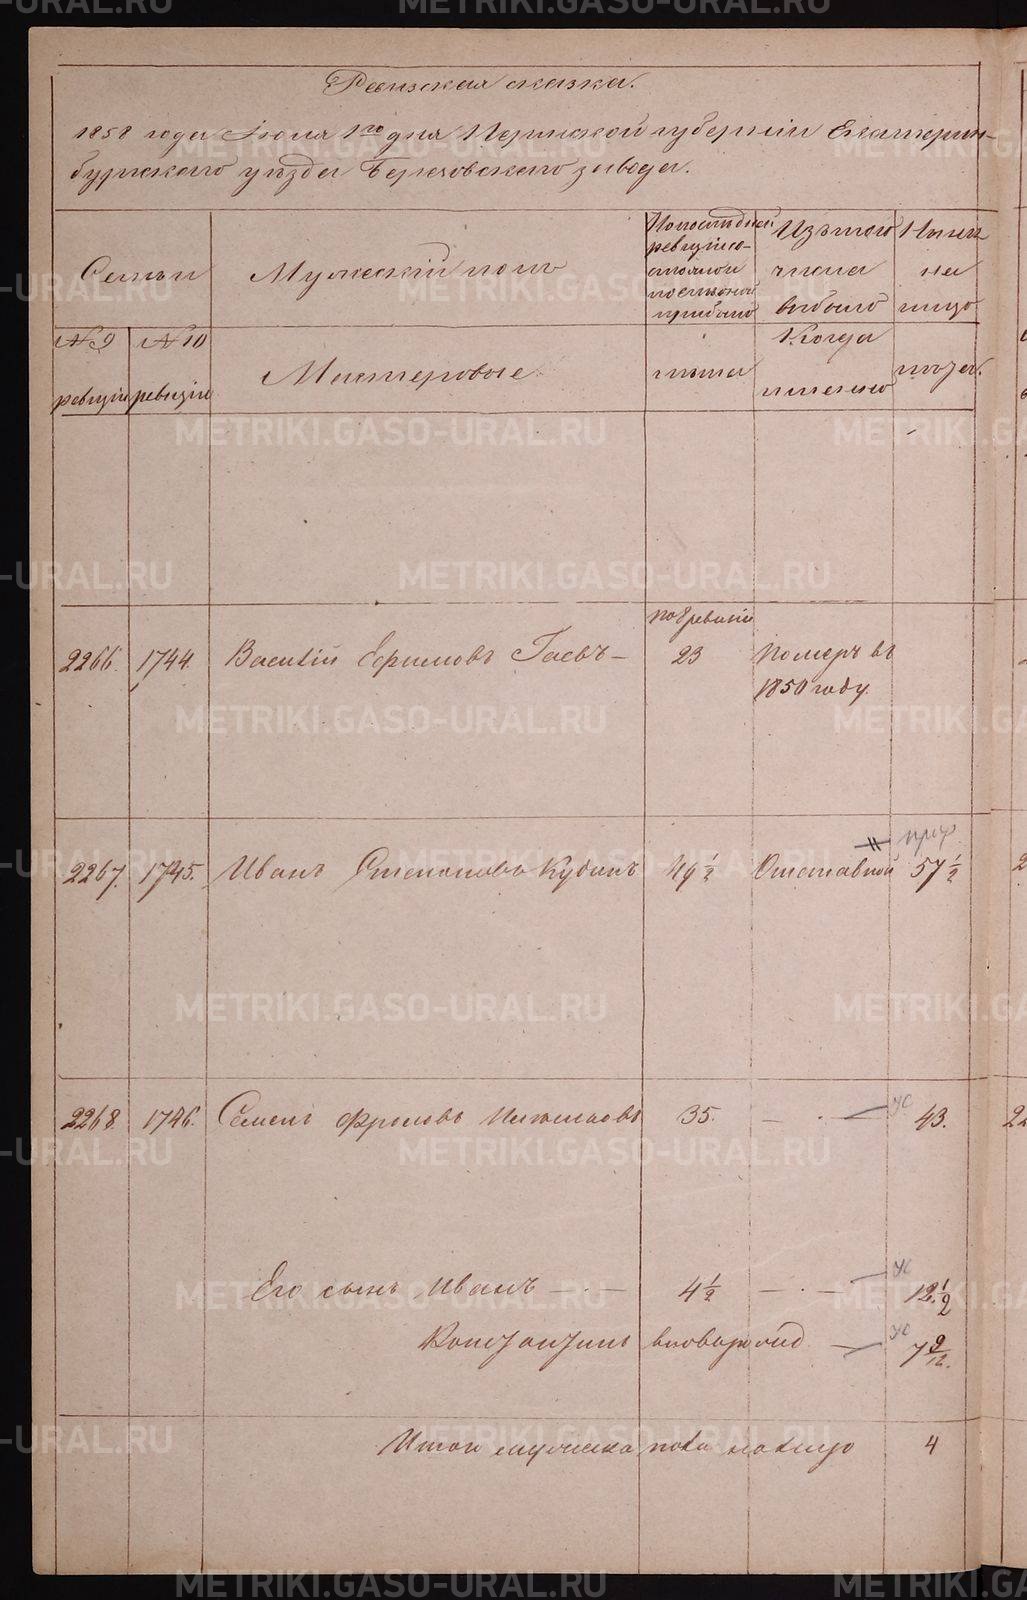 Ревизская сказка.
1858 года Июля 1го дня Пермской губернии Екатерин-
бургского уезда Березовского завода.
Семьи
Мужеский полъ
По последней
ревизіи
состояло
и после оной
прибыло
Изъ того
числа
выбыло
Ныне
на
лицо
№ 9
ревизіи
№ 10
ревизіи
Мастеровые
лета
Когда
именно
лета.
по 8 ревизіи
2266. 1744. Василій Ефимовъ Гаевъ — 23 Померъ въ
1850 году.
приф
2267. 1745. Иванъ Степановъ Кубинъ 49 1/2 Отставной 57 1/2
2268. 1746. Семенъ Фроловъ 35. — · — ус 43.
Его сынъ Иванъ — · — 4 1/2 — · — ус 12 1/2
Константинъ вновърожд — ус 7 9/12.
Итого мужеска пола налицо 4
METRIKI.GASO-URAL.RU